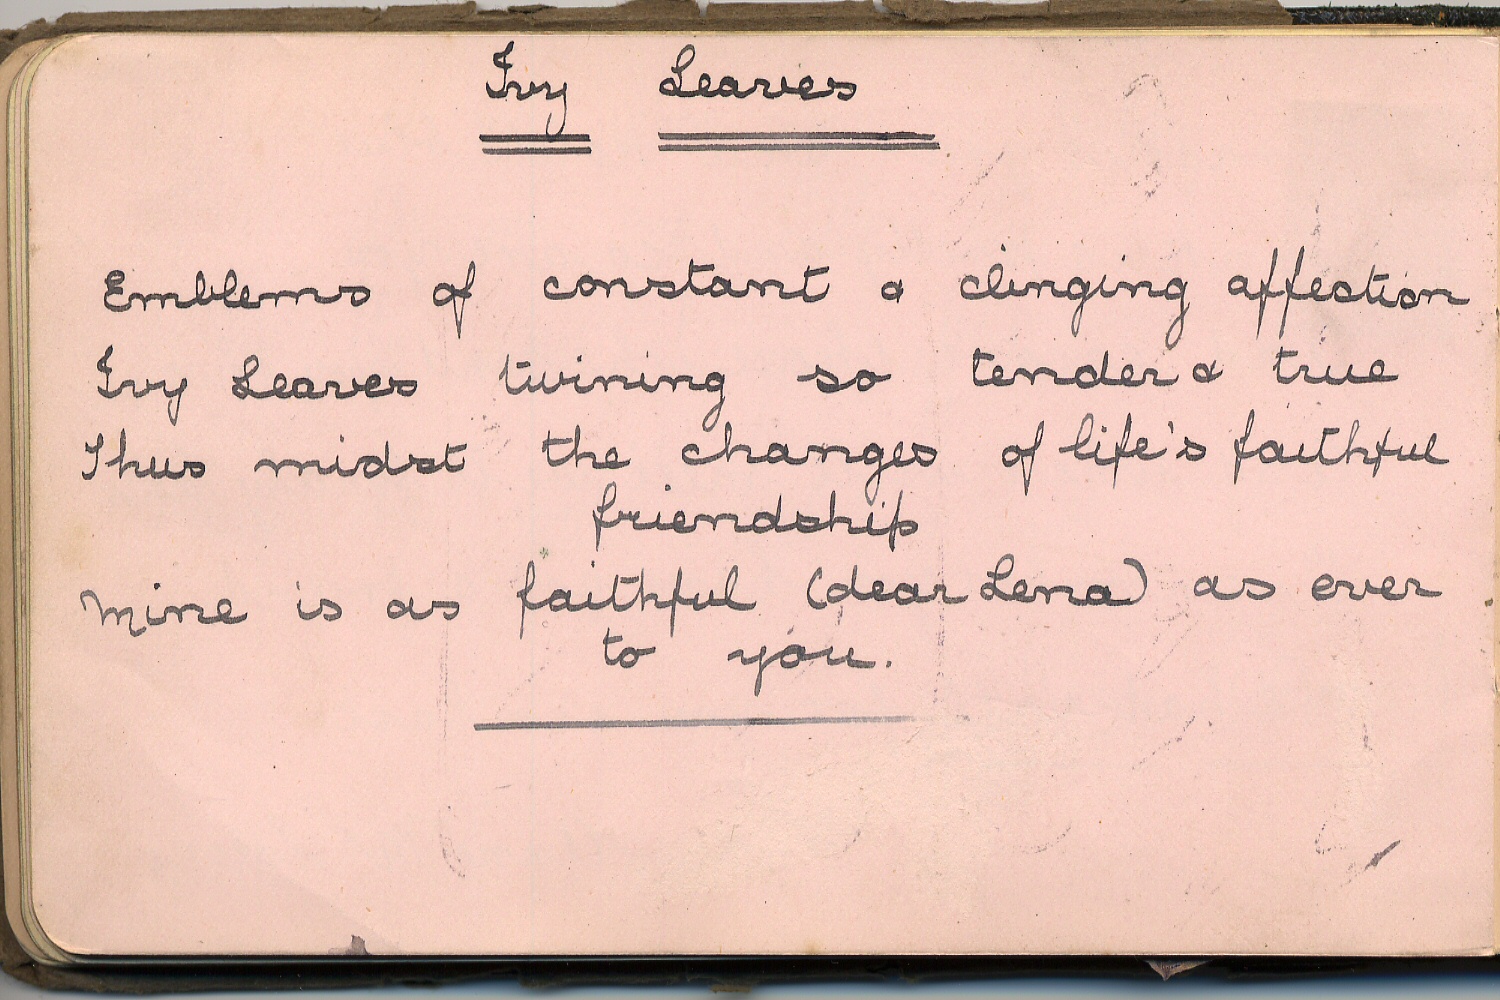 Ivy Leaves
Emblems of constant & clinging affection
Ivy Leaves twining so tender & true
Thus midst the changes of life's faithful
friendship
Mine is as faithful (dear Lena) as ever
to you.